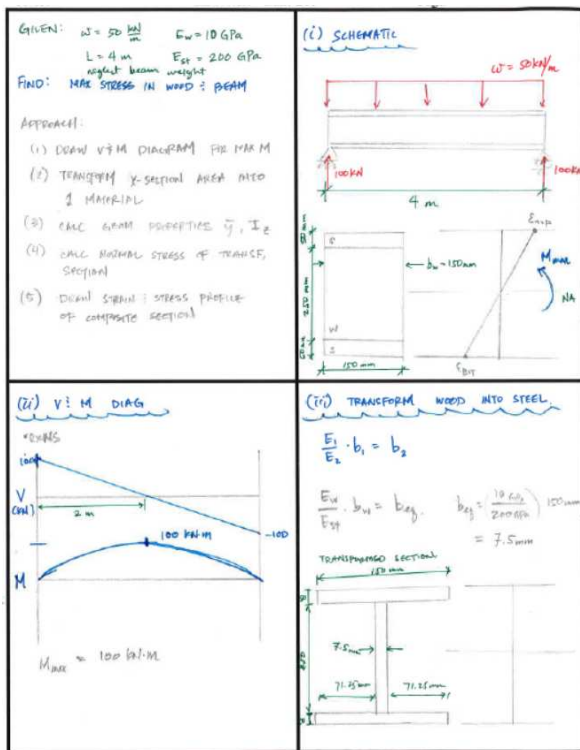 GIVEN: ω = 50 kN/m   E_w = 10 GPa
L = 4 m   E_st = 200 GPa
neglect beam weight
FIND: MAX STRESS IN WOOD & BEAM
APPROACH:
(1) DRAW V & M DIAGRAM FOR MAX M
(2) TRANSFORM X-SECTION AREA INTO
1 MATERIAL
(3) CALC GEOM PROPERTIES ȳ, I_z
(4) CALC NORMAL STRESS OF TRANSF.
SECTION
(5) DRAW STRAIN & STRESS PROFILE
OF COMPOSITE SECTION
(i) SCHEMATIC
ω = 50kN/m
100kN
100kN
4 m
b_w = 150mm
250 mm
W
150 mm
M_max
NA
ε_BOT
(ii) V & M DIAG
100
V
(kN)
2 m
-100
100 kN·m
M
M_max = 100 kN·m
TRANSFORM WOOD INTO STEEL
E₁/E₂ · b₁ = b₂
E_w/E_st · b_w = b_eq.   b_eq = (10 GPa/200GPa) 150mm
= 7.5mm
TRANSFORMED SECTION
150mm
7.5mm
71.25mm   71.25mm